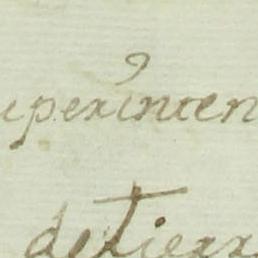 uperinten
de tierr